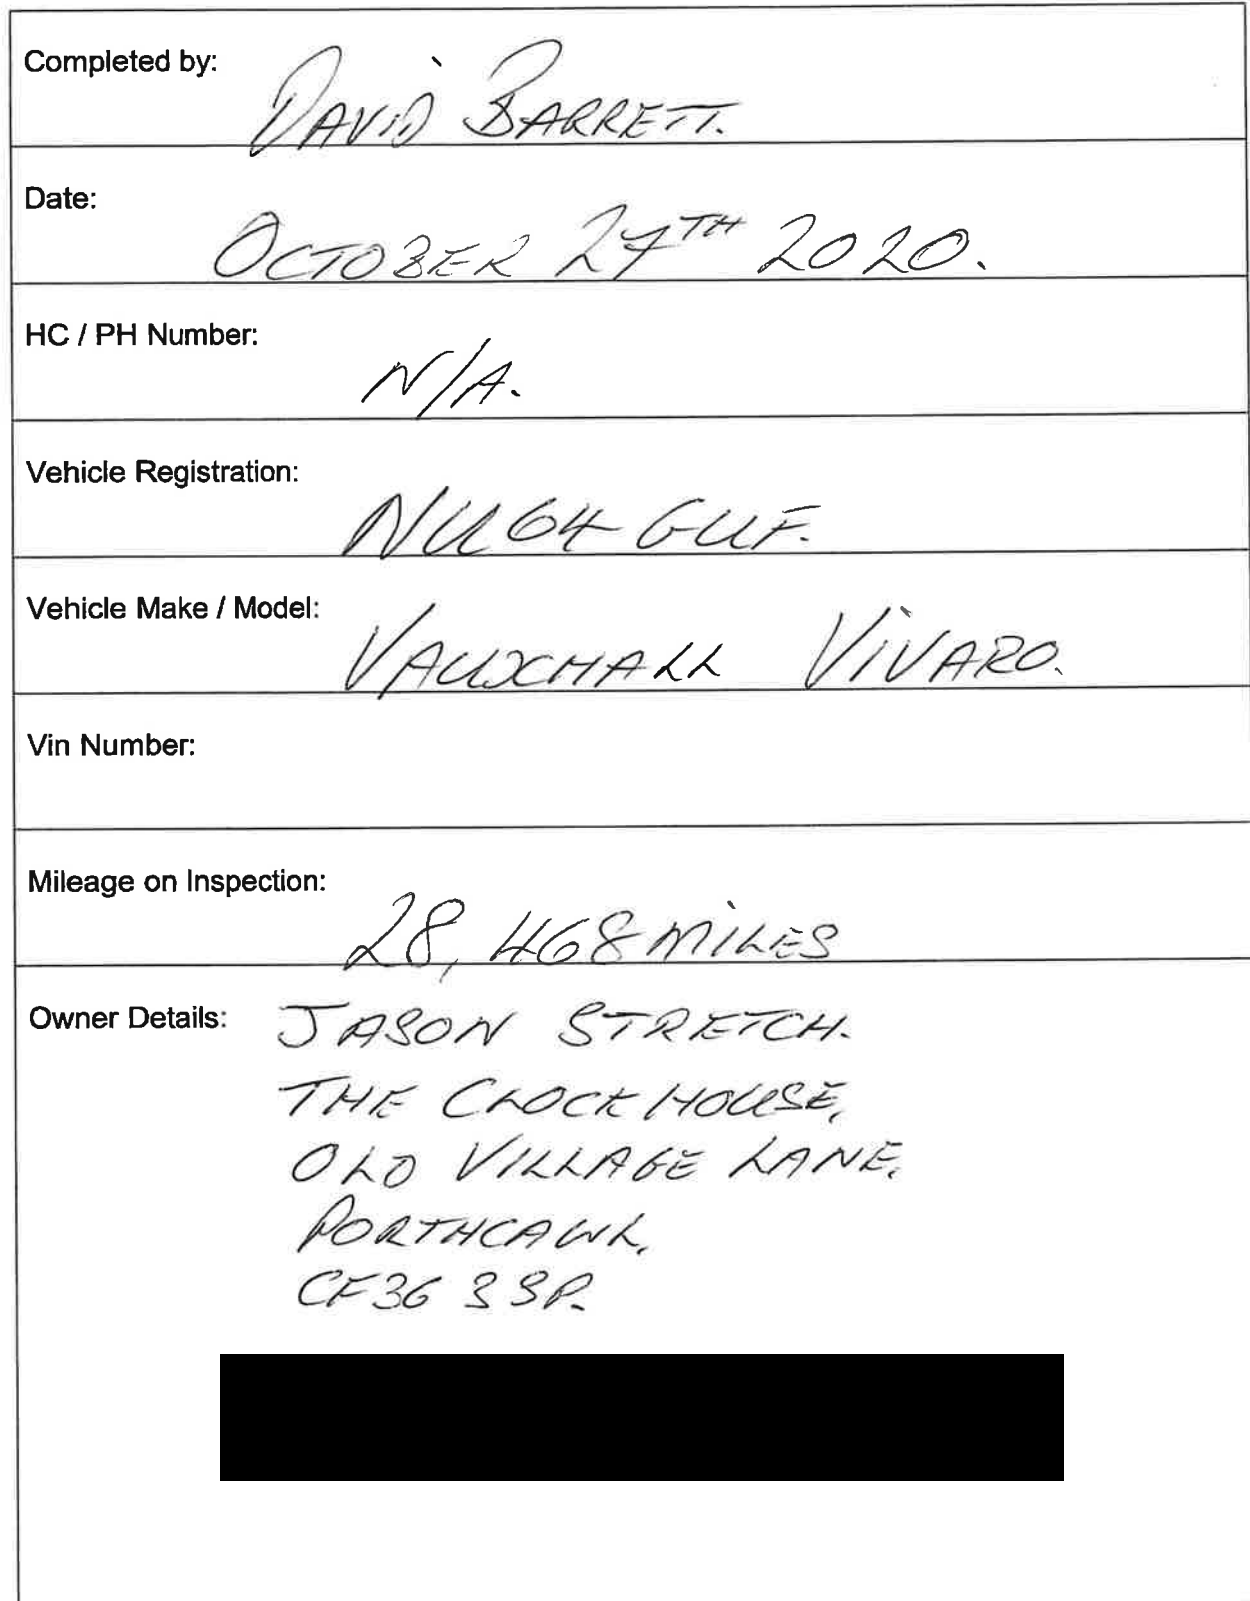 Completed by:
DAVID BARRETT.
Date:
OCTOBER 27TH 2020.
HC / PH Number:
N/A.
Vehicle Registration:
NU64 GUF.
Vehicle Make / Model:
VAUXHALL VIVARO.
Vin Number:
Mileage on Inspection:
28,468 MILES
Owner Details:
JASON STRETCH.
THE CLOCK HOUSE,
OLD VILLAGE LANE,
PORTHCAWL,
CF36 3SP.